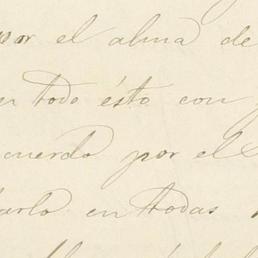 por el alma de
en todo ésto con
cuerdo por el
arlo en todas